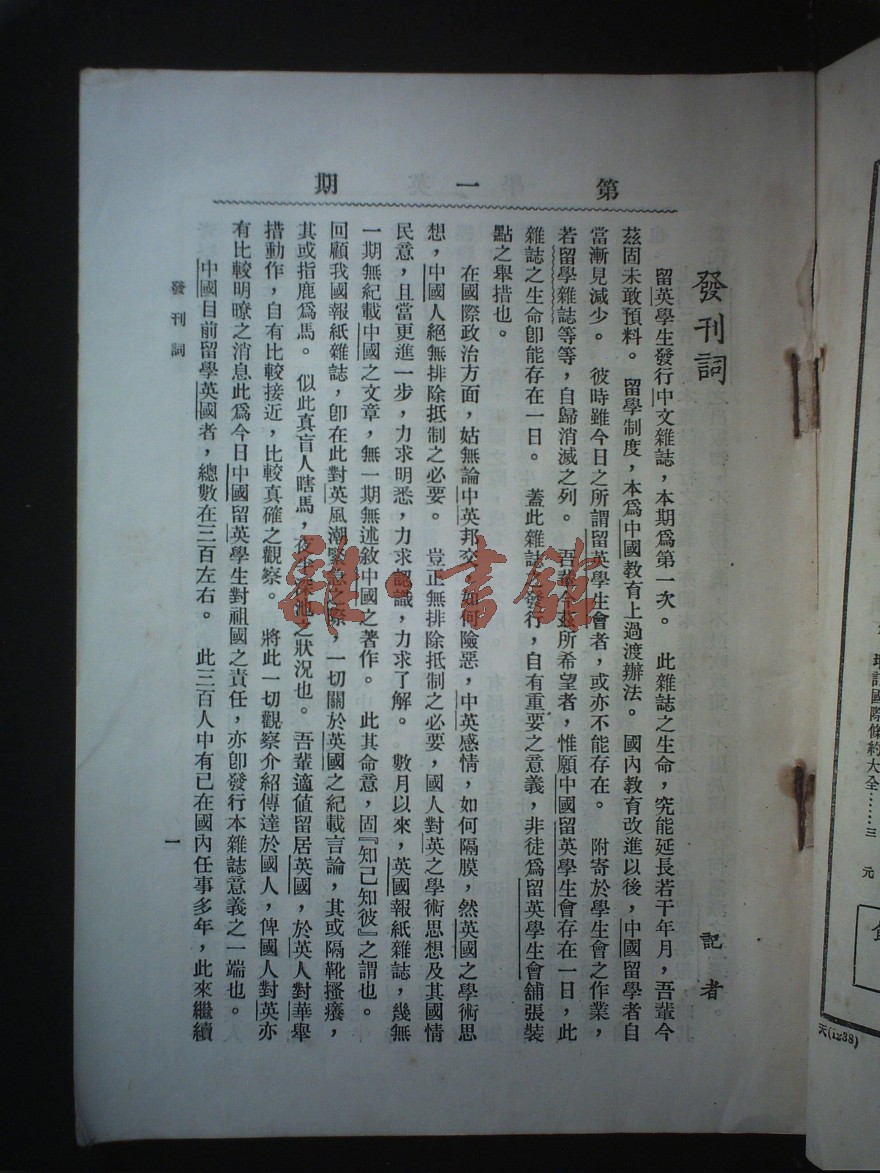 第一期
發刊詞
記者
留英學生發行中文雜誌，本期爲第一次。此雜誌之生命，究能延長若干年月，吾輩今
茲固未敢預料。留學制度，本爲中國教育上過渡辦法。國內教育改進以後，中國留學者自
當漸見減少。彼時雖今日之所謂留英學生會者，或亦不能存在。附寄於學生會之作業，
若留學雜誌等等，自歸消滅之列。吾輩今茲所希望者，惟願中國留英學生會存在一日，此
雜誌之生命卽能存在一日。蓋此雜誌之發行，自有重要之意義，非徒爲留英學生會舖張裝
點之舉措也。
在國際政治方面，姑無論中英邦交，如何險惡，中英感情，如何隔膜，然英國之學術思
想，中國人絕無排除抵制之必要。豈正無排除抵制之必要，國人對英之學術思想及其國情
民意，且當更進一步，力求明悉，力求認識，力求了解。數月以來，英國報紙雜誌，幾無
一期無紀載中國之文章，無一期無述敘中國之著作。此其命意，固『知己知彼』之謂也。
回顧我國報紙雜誌，卽在此對英風潮緊急之際，一切關於英國之紀載言論，其或隔靴搔癢，
其或指鹿爲馬。似此真盲人瞎馬，夜深池之狀況也。吾輩適值留居英國，於英人對華舉
措動作，自有比較接近，比較真確之觀察。將此一切觀察介紹傳達於國人，俾國人對英亦
有比較明瞭之消息此爲今日中國留英學生對祖國之責任，亦卽發行本雜誌意義之一端也。
中國目前留學英國者，總數在三百左右。此三百人中有已在國內任事多年，此來繼續
發刊詞
一
國際條約大全……三元
天(1238)
雜·書館